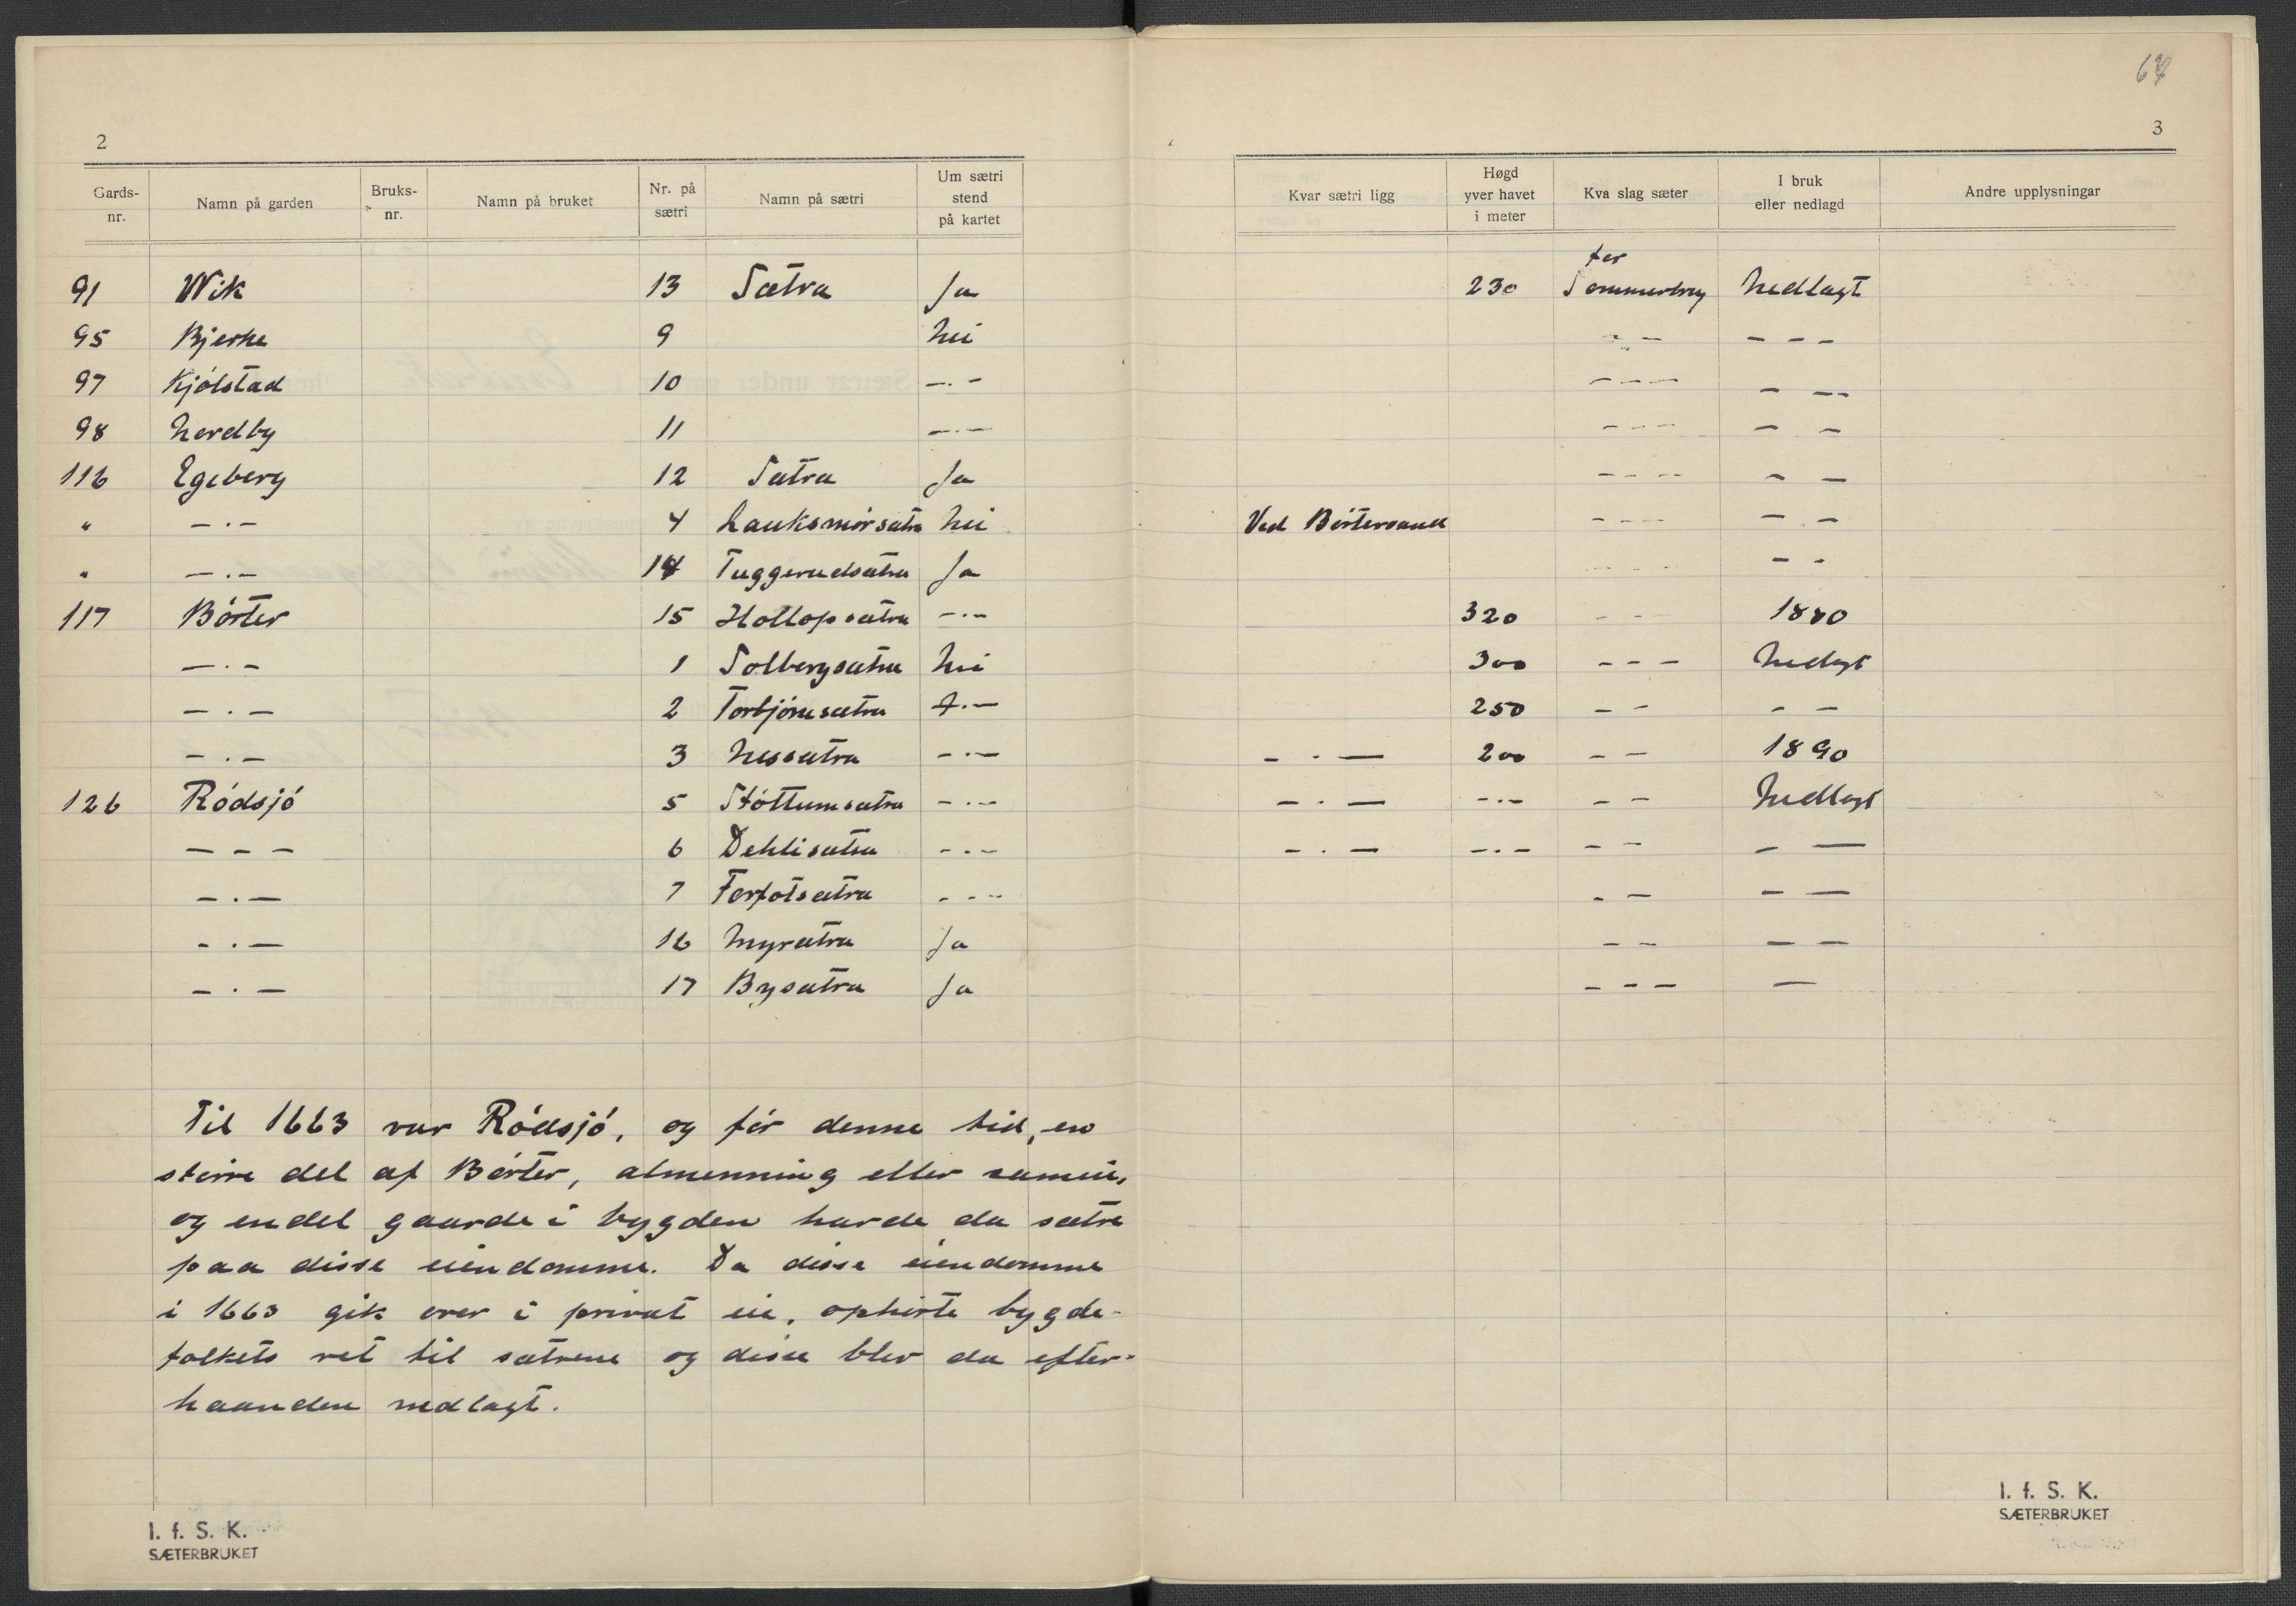 64
2
3
Gards-nr. Namn på garden Bruks-nr. Namn på bruket Nr. på sætri Namn på sætri Um sætri stend på kartet Kvar sætri ligg Høgd yver havet i meter Kva slag sæter I bruk eller nedlagd Andre upplysningar
for
91 Wik 13 Sætra Ja 230 Sommerbrug Nedlagt
95 Bjerke 9 Nei - - - - -
97 Kjølstad 10 -.- - - - - --
98 Nordby 11 -.- - - - - -
116 Egeberg 12 Sætra Ja - - - - - -
" -.- 4 Lauksmörsætra Nei Ved Börtervand - - - - -
" -.- 14 Tuggerudsætra Ja - - - - - -
117 Börter 15 Hollopsætra -.- 320 - - 1880
-.- 1 Solbergsætra Nei 300 - - - Nedlagt
-.- 2 Torbjörnsætra -.- 250 - - - -
-.- 3 Nessætra -.- - . - 200 - - 1890
126 Rödsjö 5 Støttumsætra -.- - . - -.- - - Nedlagt
- - - 6 Dehlisætra -.- - . - -.- - - - -
-.- 7 Forfotsætra - - - - - - -
-.- 16 Myrsætra Ja - - - -
-.- 17 Bysætra Ja - - - -
Til 1663 var Rödsjö, og för denne tid, en
större del af Börter, almenning eller sameie,
og en del gaarde i bygden havde da sætre
paa disse eiendomme. Da disse eiendomme
i 1663 gik over i privat eie, ophörte bygde-
folkets ret til sætrene og disse blev da efter-
haanden nedlagt.
I. f. S. K.
SÆTERBRUKET
I. f. S. K.
SÆTERBRUKET